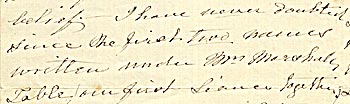 belief. I have never doubted
since the first two names
written under Mrs Marshall's
Table, our first Seance together